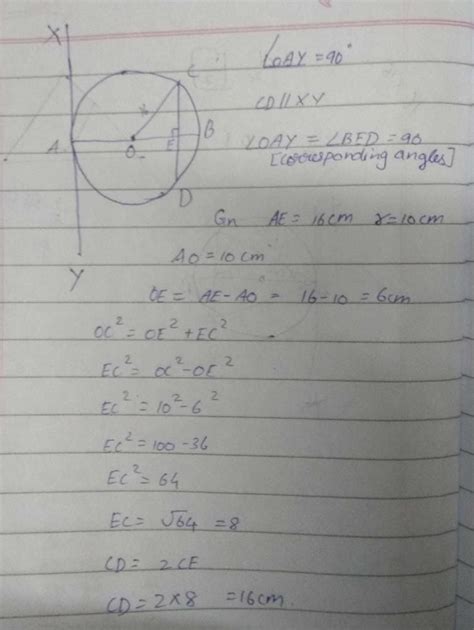 X
C
∠OAY = 90°
CD // XY
A
O
E
B
∠OAY = ∠BED = 90
[corresponding angles]
D
Gn AE = 16cm r = 10cm
Y
AO = 10cm
OE = AE - AO = 16 - 10 = 6cm
OC² = OE² + EC²
EC² = OC² - OE²
EC² = 10² - 6²
EC² = 100 - 36
EC² = 64
EC = √64 = 8
CD = 2CE
CD = 2×8 = 16cm.